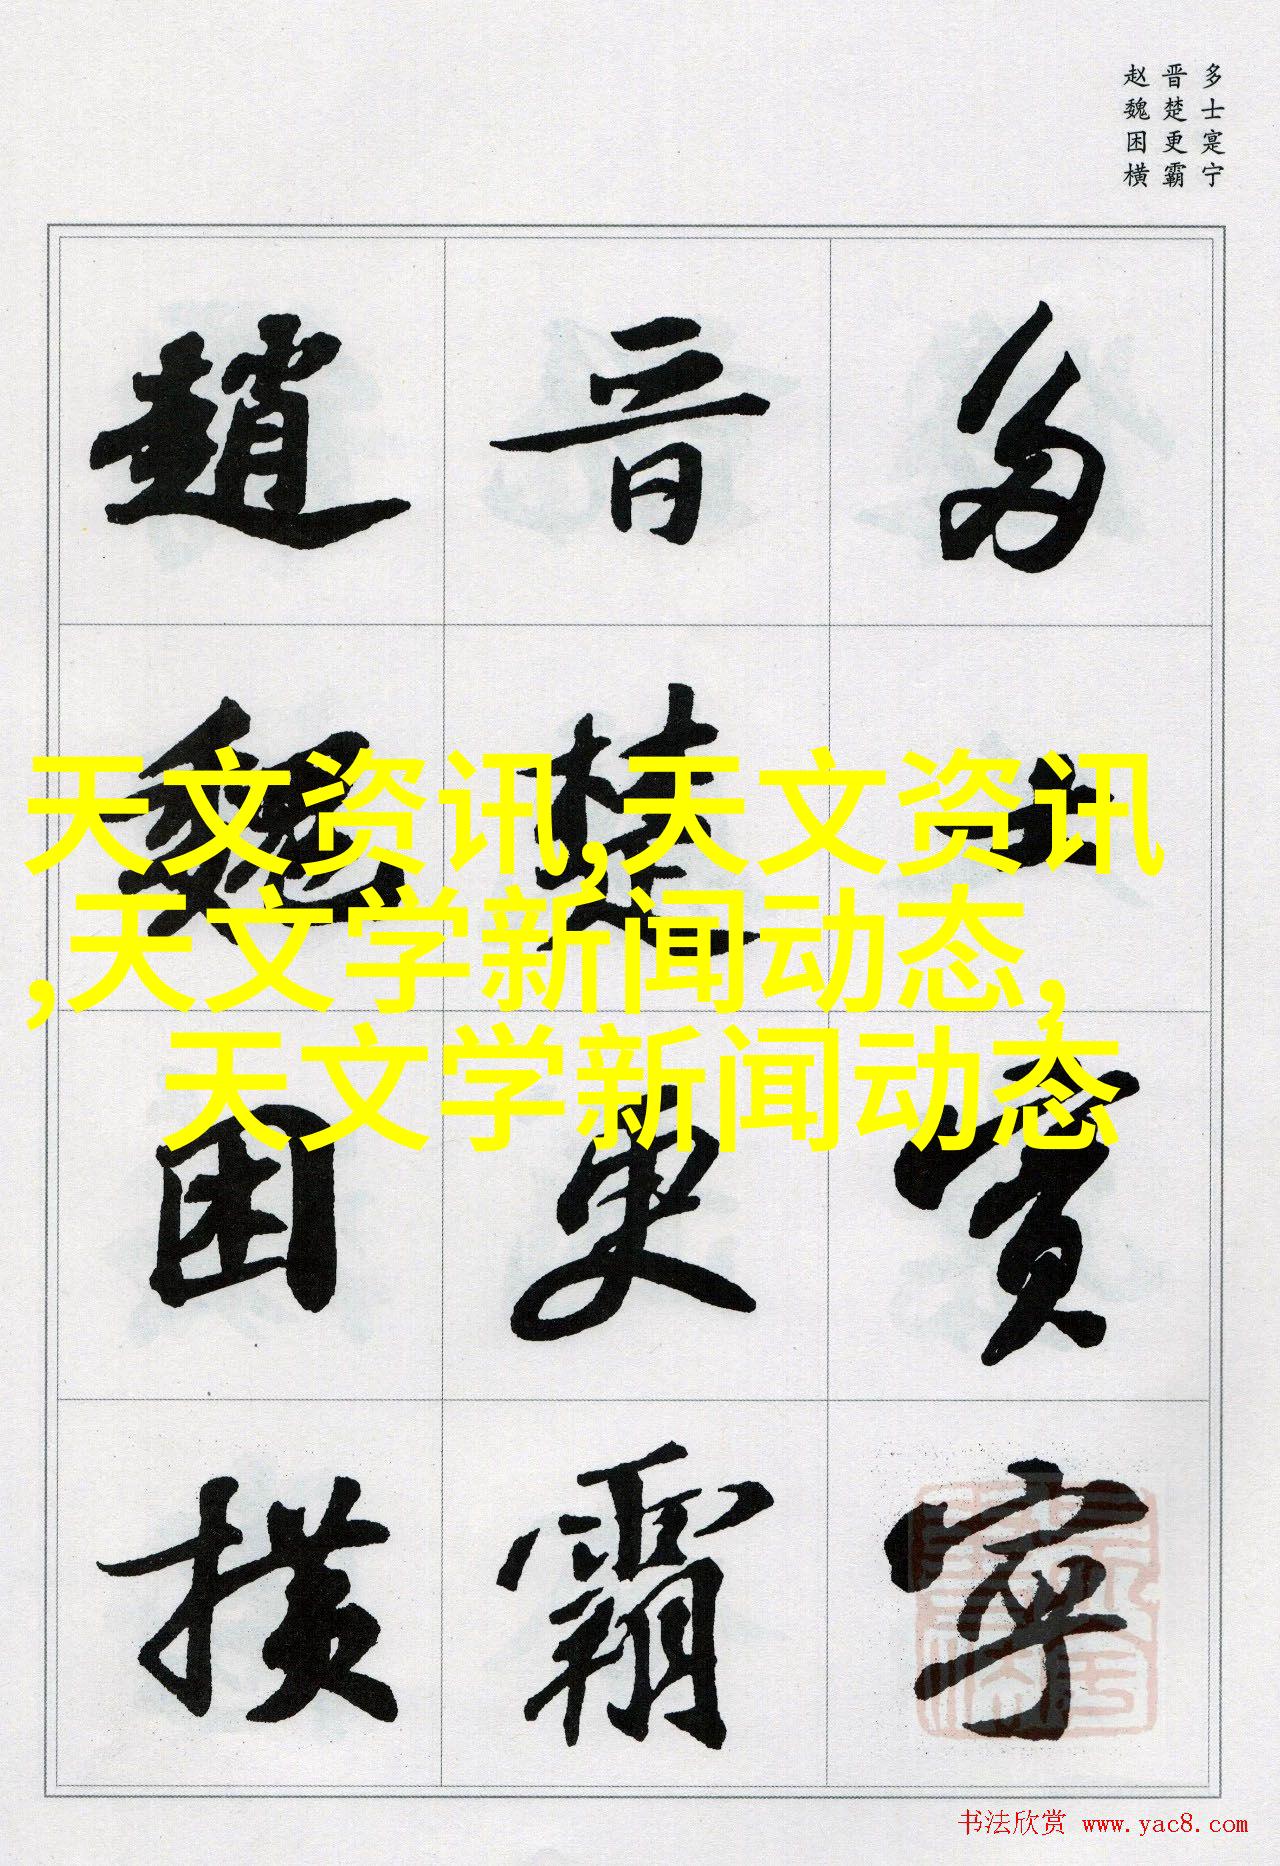 多士寔宁
晋楚更霸
赵魏困横
多士寔寧
晋楚更霸
趙魏困横
天文资讯,天文资讯
,天文学新闻动态,
天文学新闻动态
书法欣赏 www.yac8.com